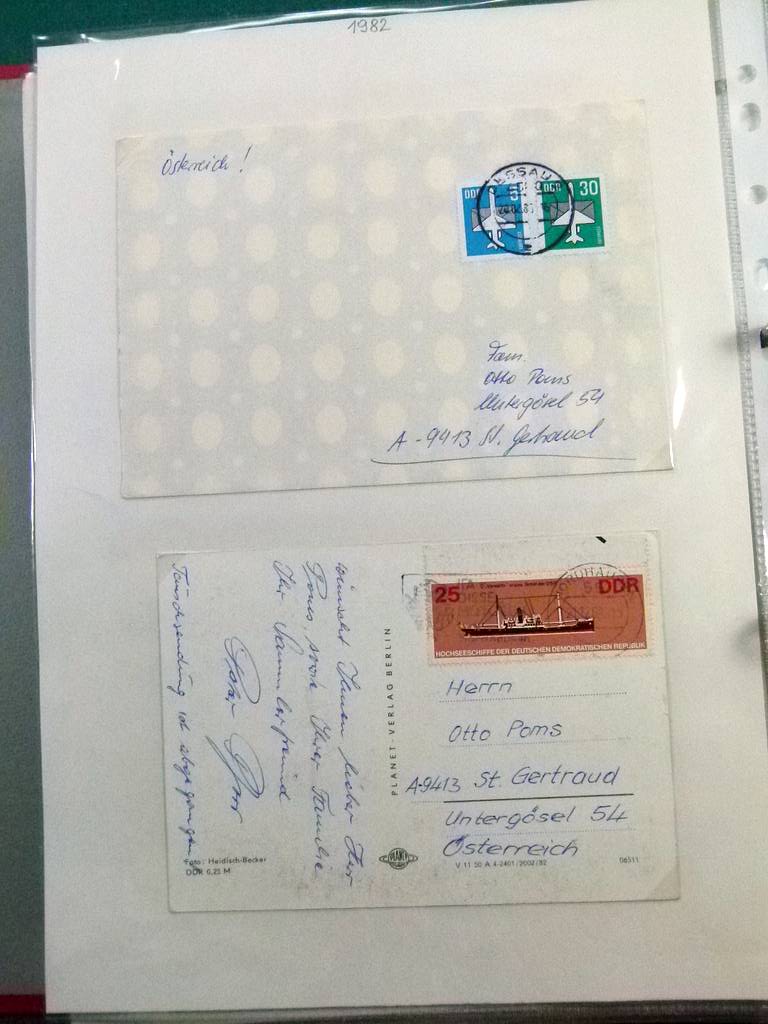 1982
Österreich!
DESSAU
DDR 5
DDR 30
Fam.
Otto Poms
Untergösel 54
A-9413 St. Gertraud
wünscht Ihnen lieber Herr
Poms, sowie Ihrer Familie
Ihr Sammlerfreund
Tauschsendung ist abgegangen
Foto: Heidisch-Becker
DDR 0,25 M
PLANET-VERLAG BERLIN
PLANET
25 DDR
HOCHSEESCHIFFE DER DEUTSCHEN DEMOKRATISCHEN REPUBLIK
Herrn
Otto Poms
A-9413 St. Gertraud
Untergösel 54
Österreich
V 11 50 A 4-2401/2002/82
06511